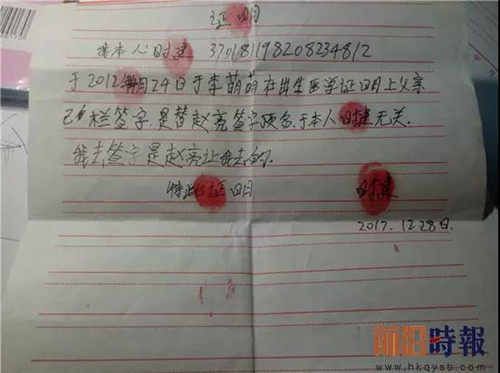 证明
本人时建 370181198208234812
于2012 24日于李萌萌在出生医学证明上父亲
栏签字.是替赵亮签字预名.于本人时建无关.
我去签字是赵亮让我去的.
特此证明 时建
2017.12 28日.
前沿時報
www.hkqysb.com